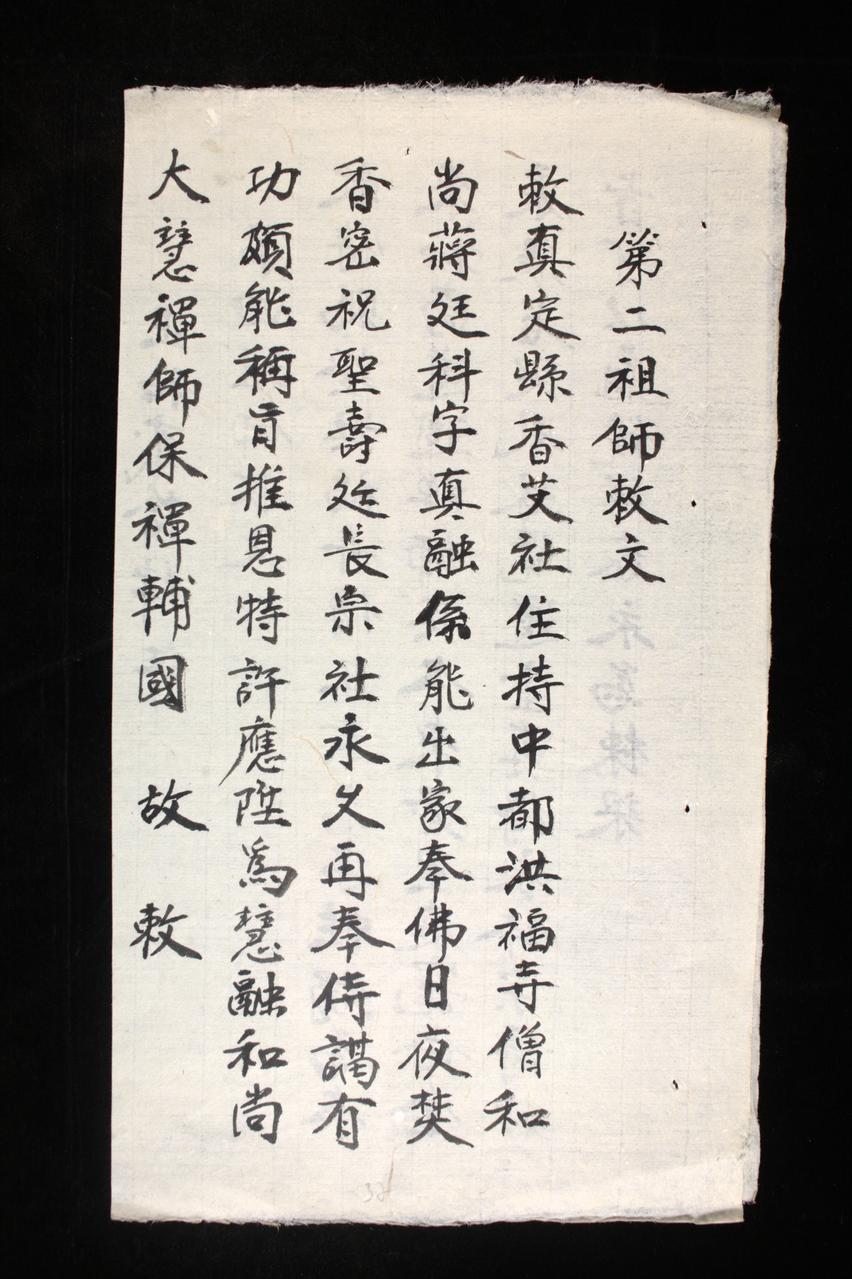 第二祖師敕文
敕真定縣香艾社住持中都洪福寺僧和
尚蔣廷科字真融係能出家奉佛日夜焚
香密祝聖壽延長宗社永久再奉侍謁有
功頗能稱旨推恩特許應陞爲慧融和尚
大慧禪師保禪輔國 故 敕